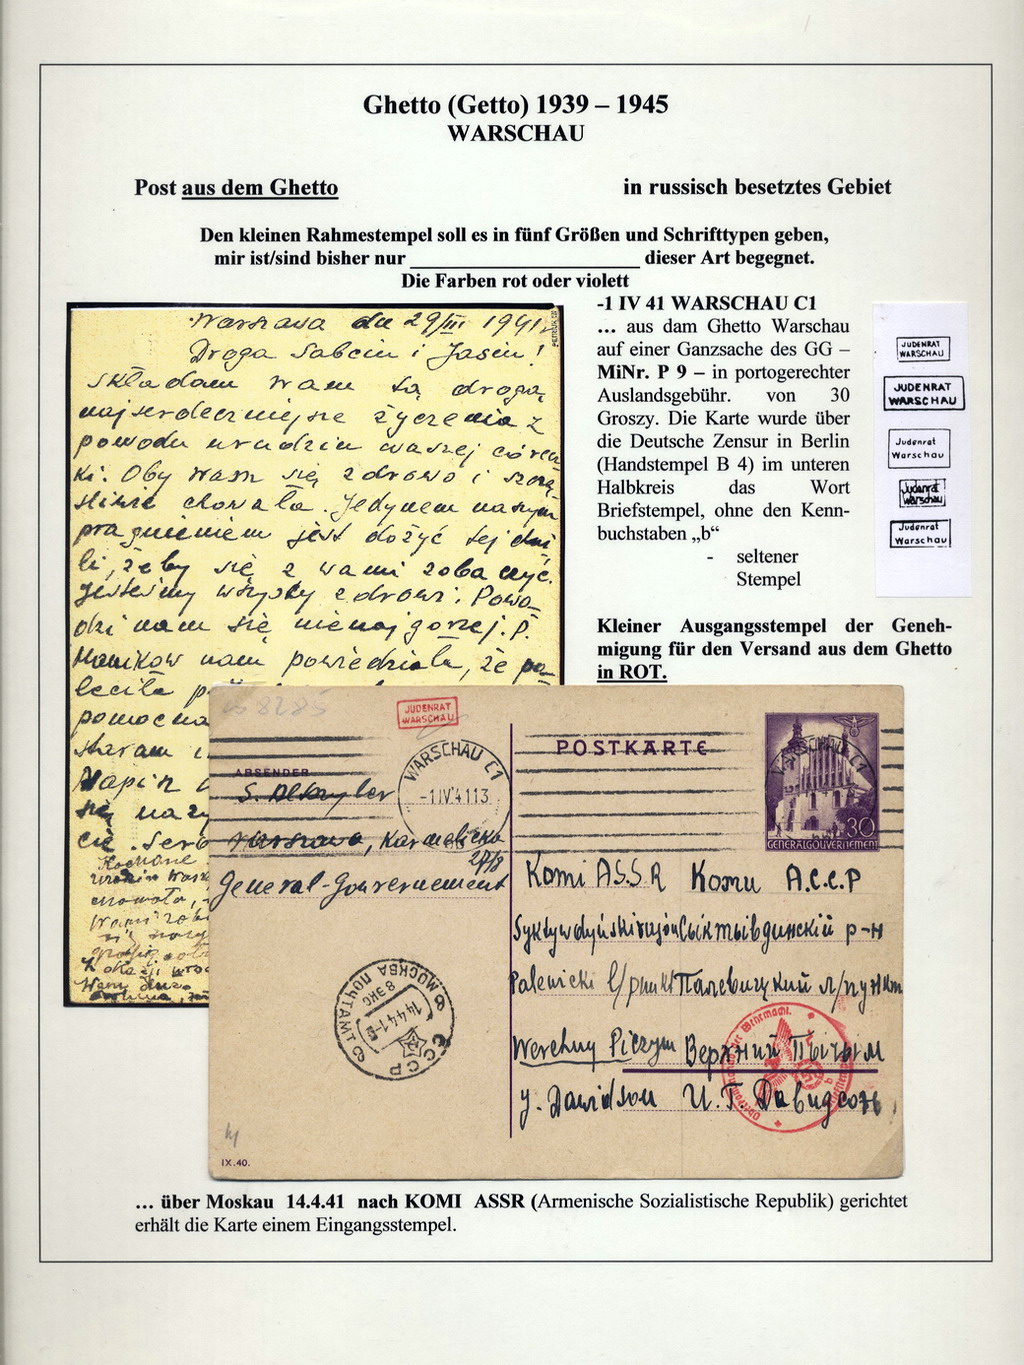 Ghetto (Getto) 1939 – 1945
WARSCHAU
Post aus dem Ghetto
in russisch besetztes Gebiet
Den kleinen Rahmestempel soll es in fünf Größen und Schrifttypen geben,
mir ist/sind bisher nur ______________________ dieser Art begegnet.
Die Farben rot oder violett
Warszawa dn 29/III 1941
Droga Sabciu i Jasiu!
Składam Wam tą drogą
najserdeczniejsze życzenia z
powodu urodzin waszej córecz
ki. Oby Wam się zdrowo i szczę
śliwie chowała. Jedynem naszym
pragnieniem jest dożyć tej chwi
li, żeby się z wami zobaczyć.
Jesteśmy wszyscy zdrowi. Powo
dzi nam się nienajgorzej. P.
nam powiedziała, że po
leciła
pomocna
staram
Napisz
się
cie. Serd
Kochane
-1 IV 41 WARSCHAU C1
... aus dam Ghetto Warschau
auf einer Ganzsache des GG –
MiNr. P 9 – in portogerechter
Auslandsgebühr. von 30
Groszy. Die Karte wurde über
die Deutsche Zensur in Berlin
(Handstempel B 4) im unteren
Halbkreis das Wort
Briefstempel, ohne den Kenn-
buchstaben „b“
- seltener
Stempel
JUDENRAT
WARSCHAU
JUDENRAT
WARSCHAU
Judenrat
Warschau
Judenrat
Warschau
Judenrat
Warschau
Kleiner Ausgangsstempel der Geneh-
migung für den Versand aus dem Ghetto
in ROT.
8285
JUDENRAT
WARSCHAU
WARSCHAU C1
-1.IV.41.13
POSTKARTE
WARSCHAU C1
30
GENERALGOUVERNEMENT
ABSENDER
Warszawa, Karmelicka
27/8
General-Gouvernement
Komi A.S.S.R Коми А.С.С.Р
Syktywdyński rajon Сыктывдинский р-н
Palewicki l/punkt Палевицкий л/пункт
Werchny Piczym Верхний Пычым
J. Dawidson И. Г. Давидсон
МОСКВА ПОЧТАМТ
14.4.41
СССР
der Wehrmacht
IX.40.
... über Moskau 14.4.41 nach KOMI ASSR (Armenische Sozialistische Republik) gerichtet
erhält die Karte einem Eingangsstempel.